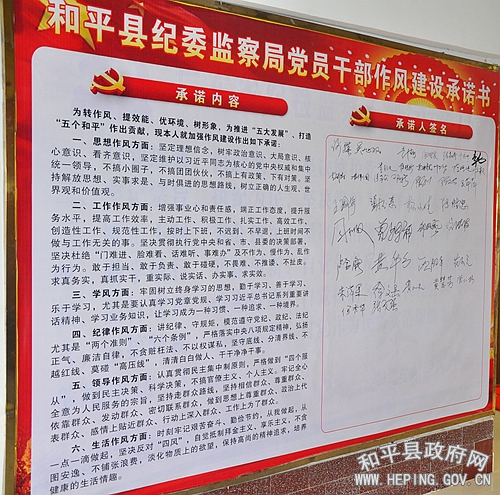 和平县纪委监察局党员干部作风建设承诺书
承诺内容
为转作风、提效能、优环境、树形象，为推进“五大发展”、打造
“五个和平”作出贡献，现本人就加强作风建设作出如下承诺：
一、思想作风方面：坚定理想信念，树牢政治意识、大局意识、核
心意识、看齐意识，坚定维护以习近平同志为核心的党中央权威和集中
统一领导，不搞小圈子，不搞团团伙伙，不搞上有政策、下有对策。坚
持解放思想、实事求是、与时俱进的思想路线，树立正确的人生观、世
界观和价值观。
二、工作作风方面：增强事业心和责任感，端正工作态度，提升服
务水平，提高工作效率，主动工作、积极工作、扎实工作、高效工作、
创造性工作、规范性工作，按时上下班，不迟到、不早退，上班时间不
做与工作无关的事。坚决贯彻执行党中央和省、市、县委的决策部署，
坚决杜绝“门难进、脸难看、话难听、事难办”及不作为、慢作为、乱作
为行为。敢于担当、敢于负责、敢于碰硬，不畏难、不推诿、不扯皮。
求真务实，真抓实干，重实际、说实话、办实事、求实效。
三、学风方面：牢固树立终身学习的思想，勤于学习、善于学习、
乐于学习，尤其是要认真学习党章党规、学习习近平总书记系列重要讲
话精神，学习业务知识，让学习成为一种习惯、一种追求、一种境界。
四、纪律作风方面：讲纪律、守规矩，模范遵守党纪、政纪、法纪
尤其是“两个准则”、“六个条例”，严格落实中央八项规定精神，弘扬
正气、廉洁自律，不贪赃枉法、不以权谋私，坚守底线、分清界线、不
越红线、莫碰“高压线”，清清白白做人、干干净净干事。
五、领导作风方面：认真贯彻民主集中制原则，严格做到“四个服
从”，做到民主决策、科学决策，不搞官僚主义、个人主义。牢记全心
全意为人民服务的宗旨，坚持走群众路线，坚持相信群众、尊重群众、
依靠群众、发动群众、密切联系群众，做到思想上尊重群众、政治上代
表群众、感情上贴近群众、行动上深入群众、工作上为了群众。
六、生活作风方面：时刻牢记艰苦奋斗、勤俭节约，从我做起，从
一点一滴做起，坚决反对“四风”，自觉抵制拜金主义、享乐主义，不贪
图安逸、不铺张浪费，淡化物质上的欲望，保持高尚的精神追求，培养
健康的生活情趣。
承诺人签名
和平县政府网
WWW.HEPING.GOV.CN